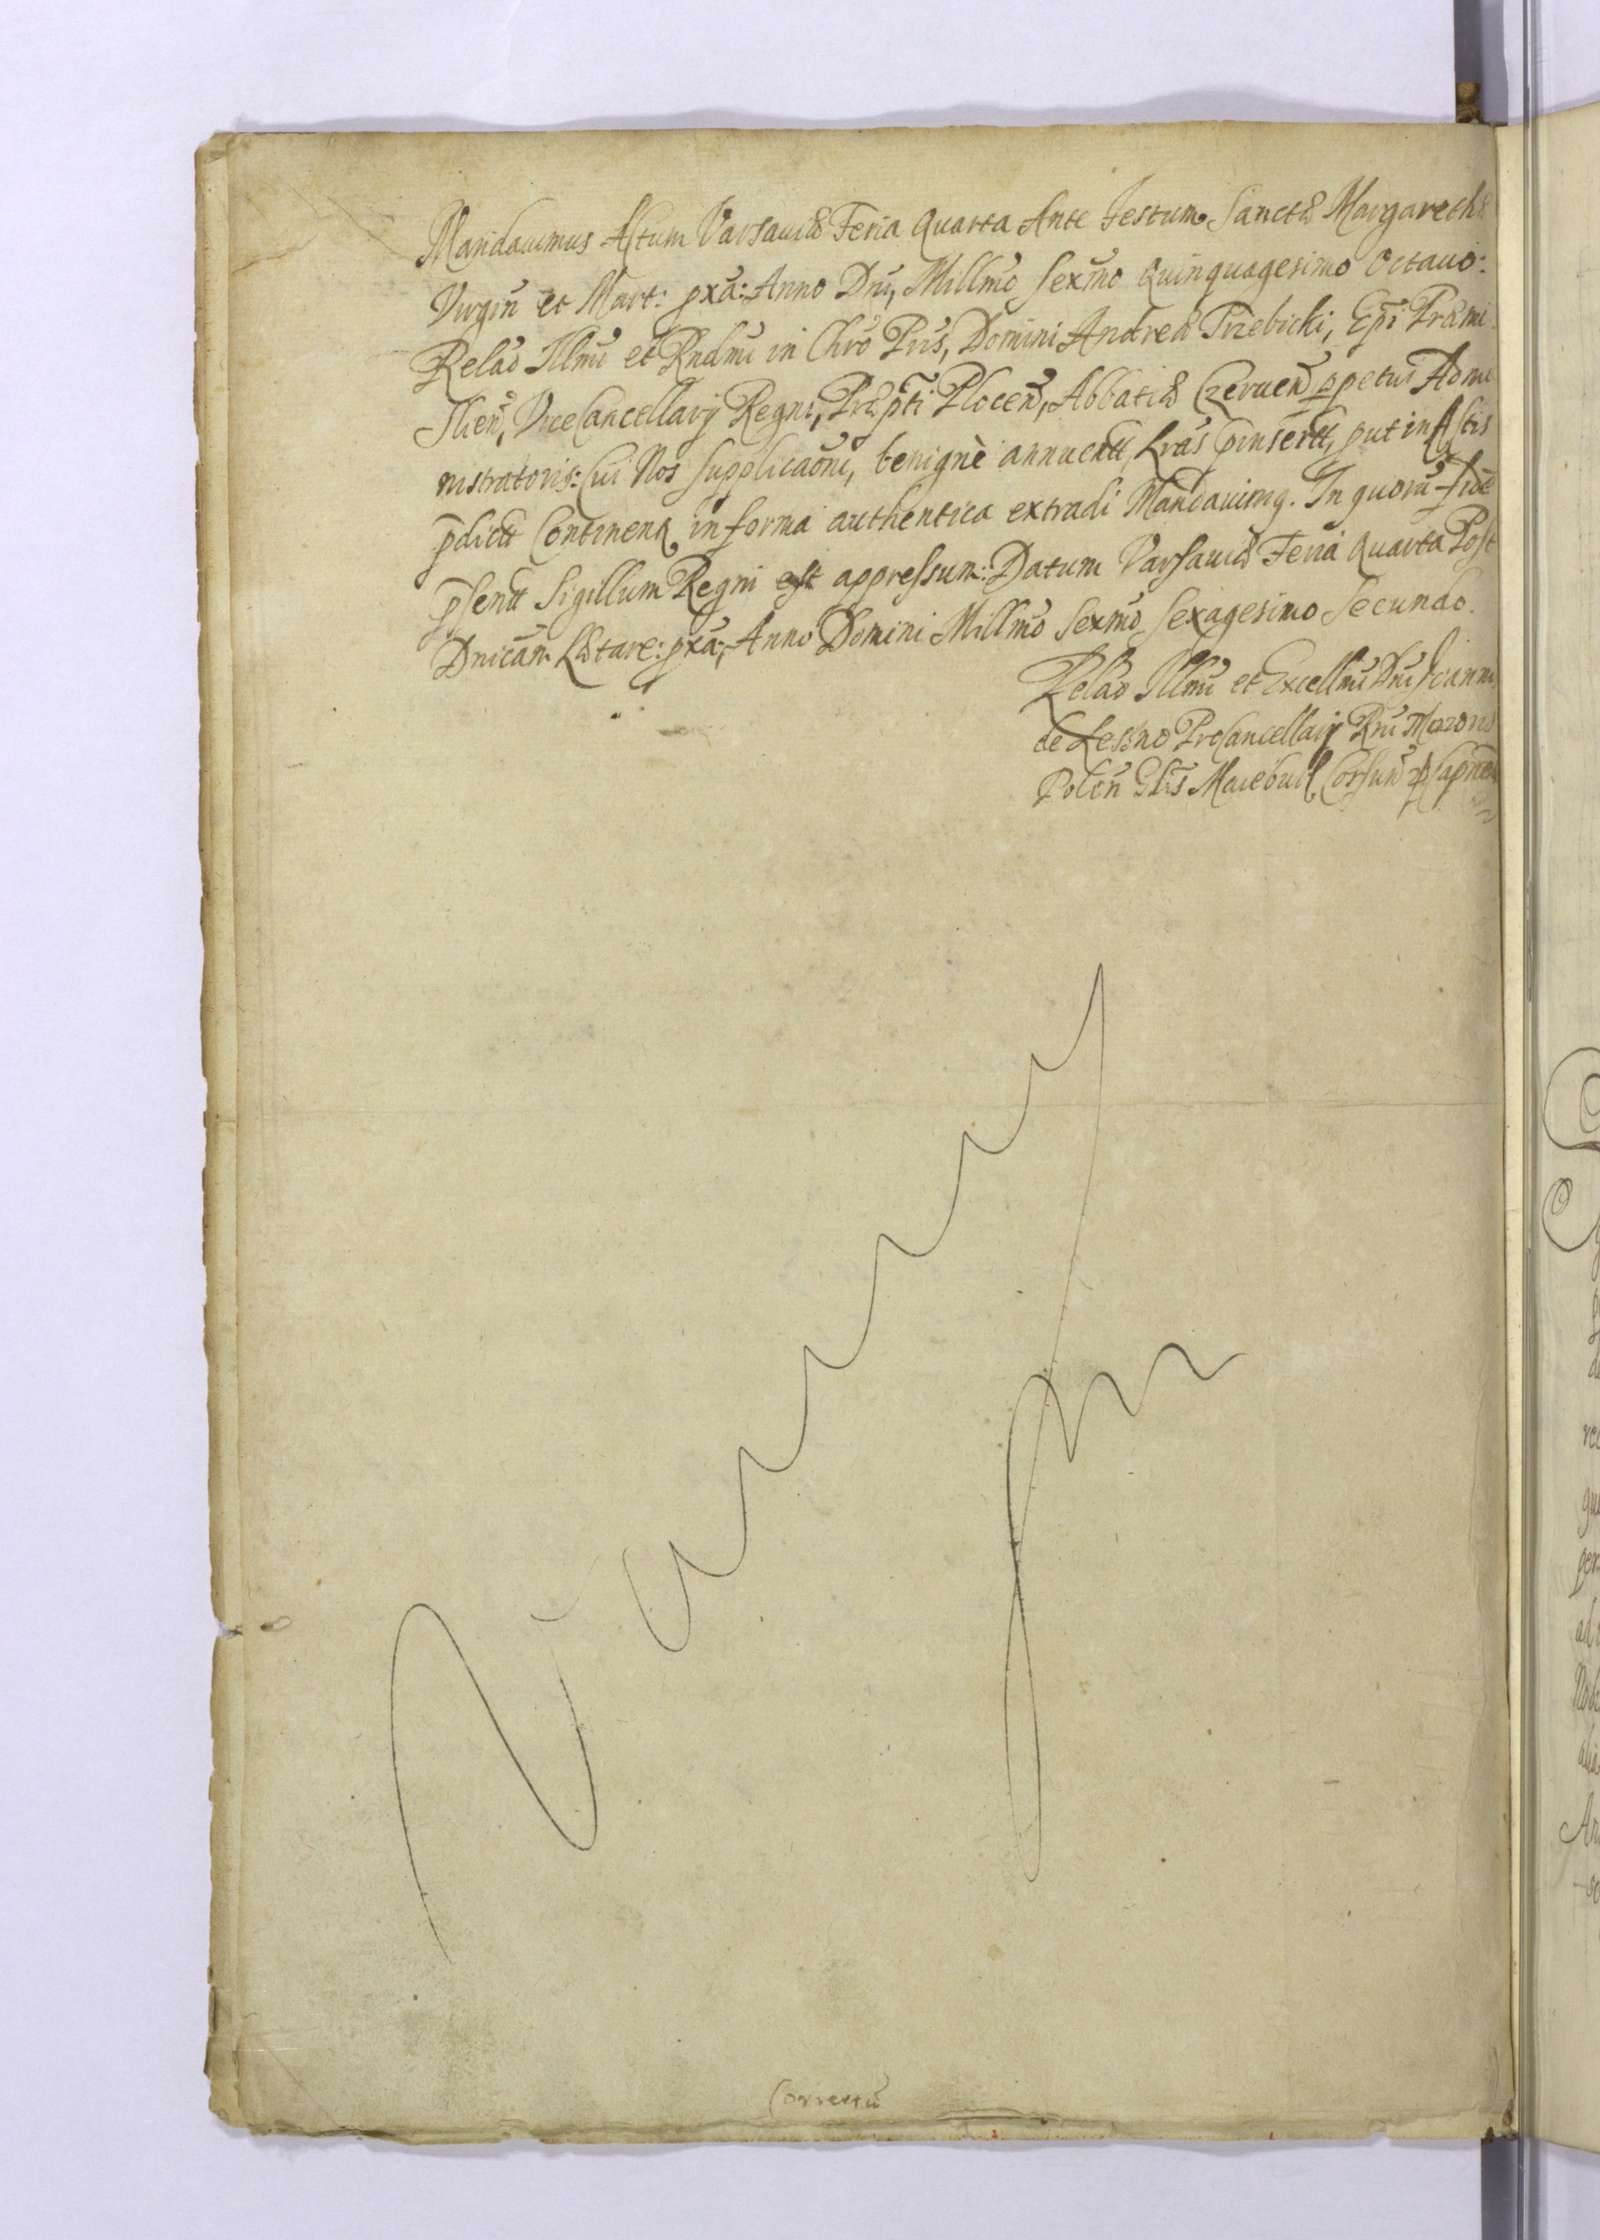 Mandavimus Actum Varsaviæ Feria Quarta Ante Festum Sanctæ Margarethæ
Virgiñ et Mart: pxã: Anno Dni, Millmo Sexmo Quinquagesimo Octavo:
Relaõ Illmi et Rndmi in Chrõ Pris, Domini Andreæ Trzebicki, Epi Præmi
slien, Vice Cancellarij Regni, Præpti Plocen, Abbatiæ Czerven ppetui Admi
nistratoris: Cui Nos supplicaõni, benignè annuentt Lras pinsertt, put in Actis
pdictt Continen in forma authentica extradi Mandavimq. In quorũ fidẽ
psentt Sigillum Regni est appressum: Datum Varsaviæ Feria Quarta Post
Dnicam Lætare: pxã, Anno Domini Millmo Sexmo Sexagesimo Secundo.
Relaõ Illmi et Excellmi Dni Joannis
de Lesno ProCancellarij Rni Majoris
Polon Glis Corsun
Correctũ